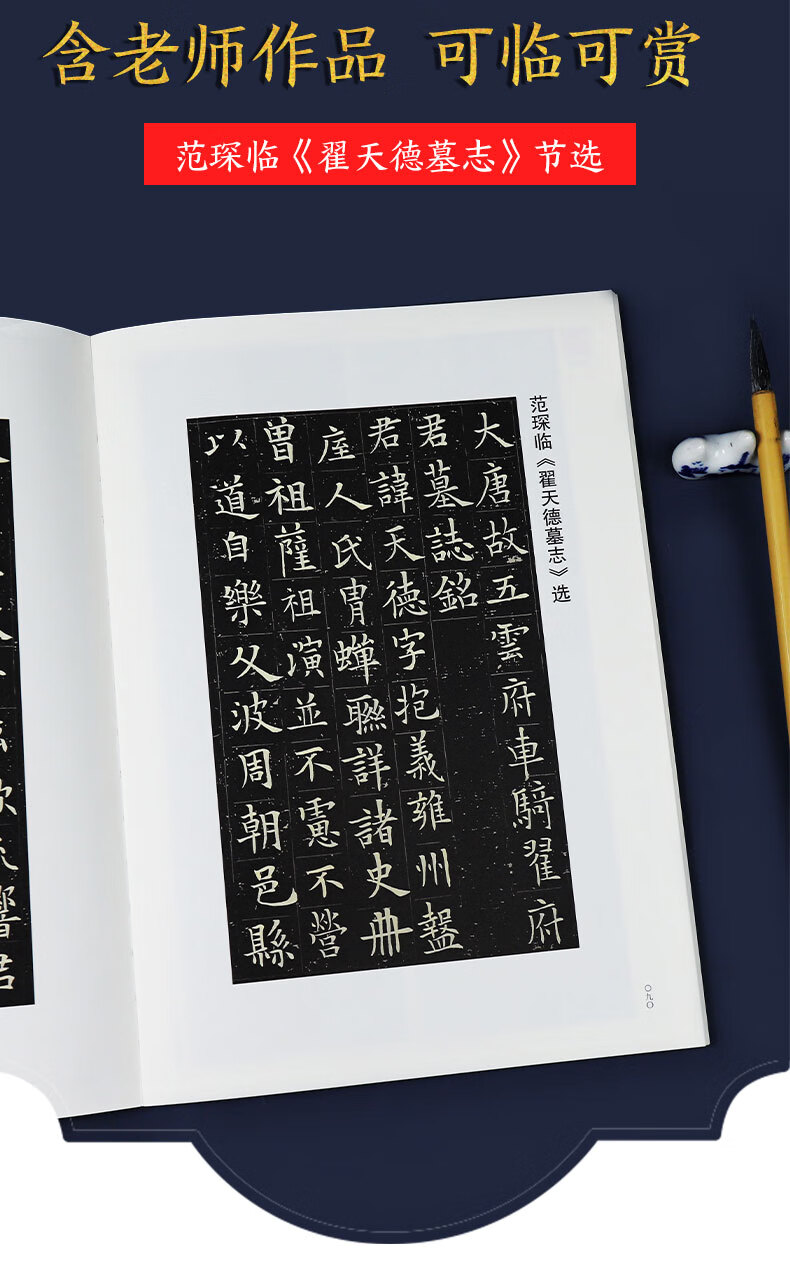 含老师作品 可临可赏
范琛临《翟天德墓志》节选
范琛临《翟天德墓志》选
大唐故五雲府車騎翟府
君墓誌銘
君諱天德字抱義雍州盩
庢人氏胄蟬聮詳諸史冊
曾祖薩祖演並不憲不營
以道自樂父波周朝邑縣
〇九〇